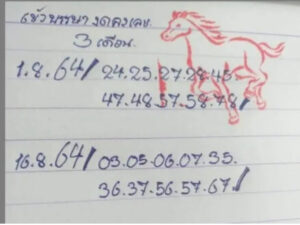 เข้าพรรษา งดลงเลข
3 เดือน
1.8.64/ 24.25.27.28.45.
47.48.57.58.78/
16.8.64/ 03.05.06.07.35.
36.37.56.57.67/